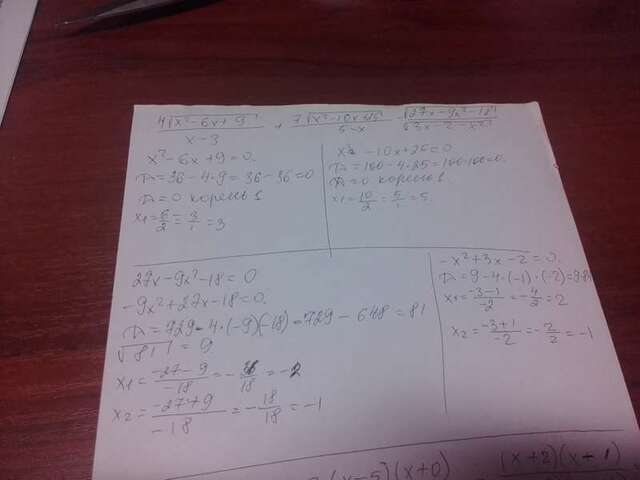 4√x²-6x+9 / x-3 + 7√x²-10x+25 / 5-x - √27x-9x²-18 / √3x-2-x²
x²-6x+9=0.
D=36-4·9=36-36=0
D=0 корень 1
x1=6/2=3/1=3
x²-10x+25=0
D=100-4·25=100-100=0.
D=0 корень 1.
x1=10/2=5/1=5.
27x-9x²-18=0
-9x²+27x-18=0.
D=729-4·(-9)(-18)=729-648=81
√81=9
x1=-27-9/-18=-36/18=-2
x2=-27+9/-18=-18/18=-1
-x²+3x-2=0.
D=9-4·(-1)·(-2)=9-8=
x1=-3-1/-2=-4/2=2
x2=-3+1/-2=-2/2=-1
(x-5)(x+0)
(x+2)(x+1)